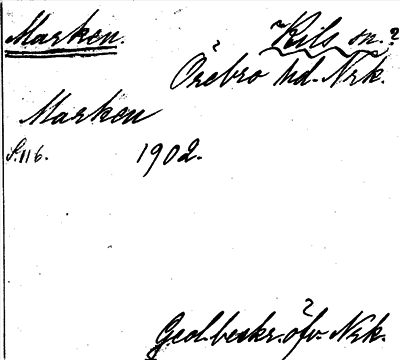 Marken. Kils sn.?
Örebro hd. Nrk.
Marken
S. 116. 1902.
Geol. beskr. öfv. Nrk.